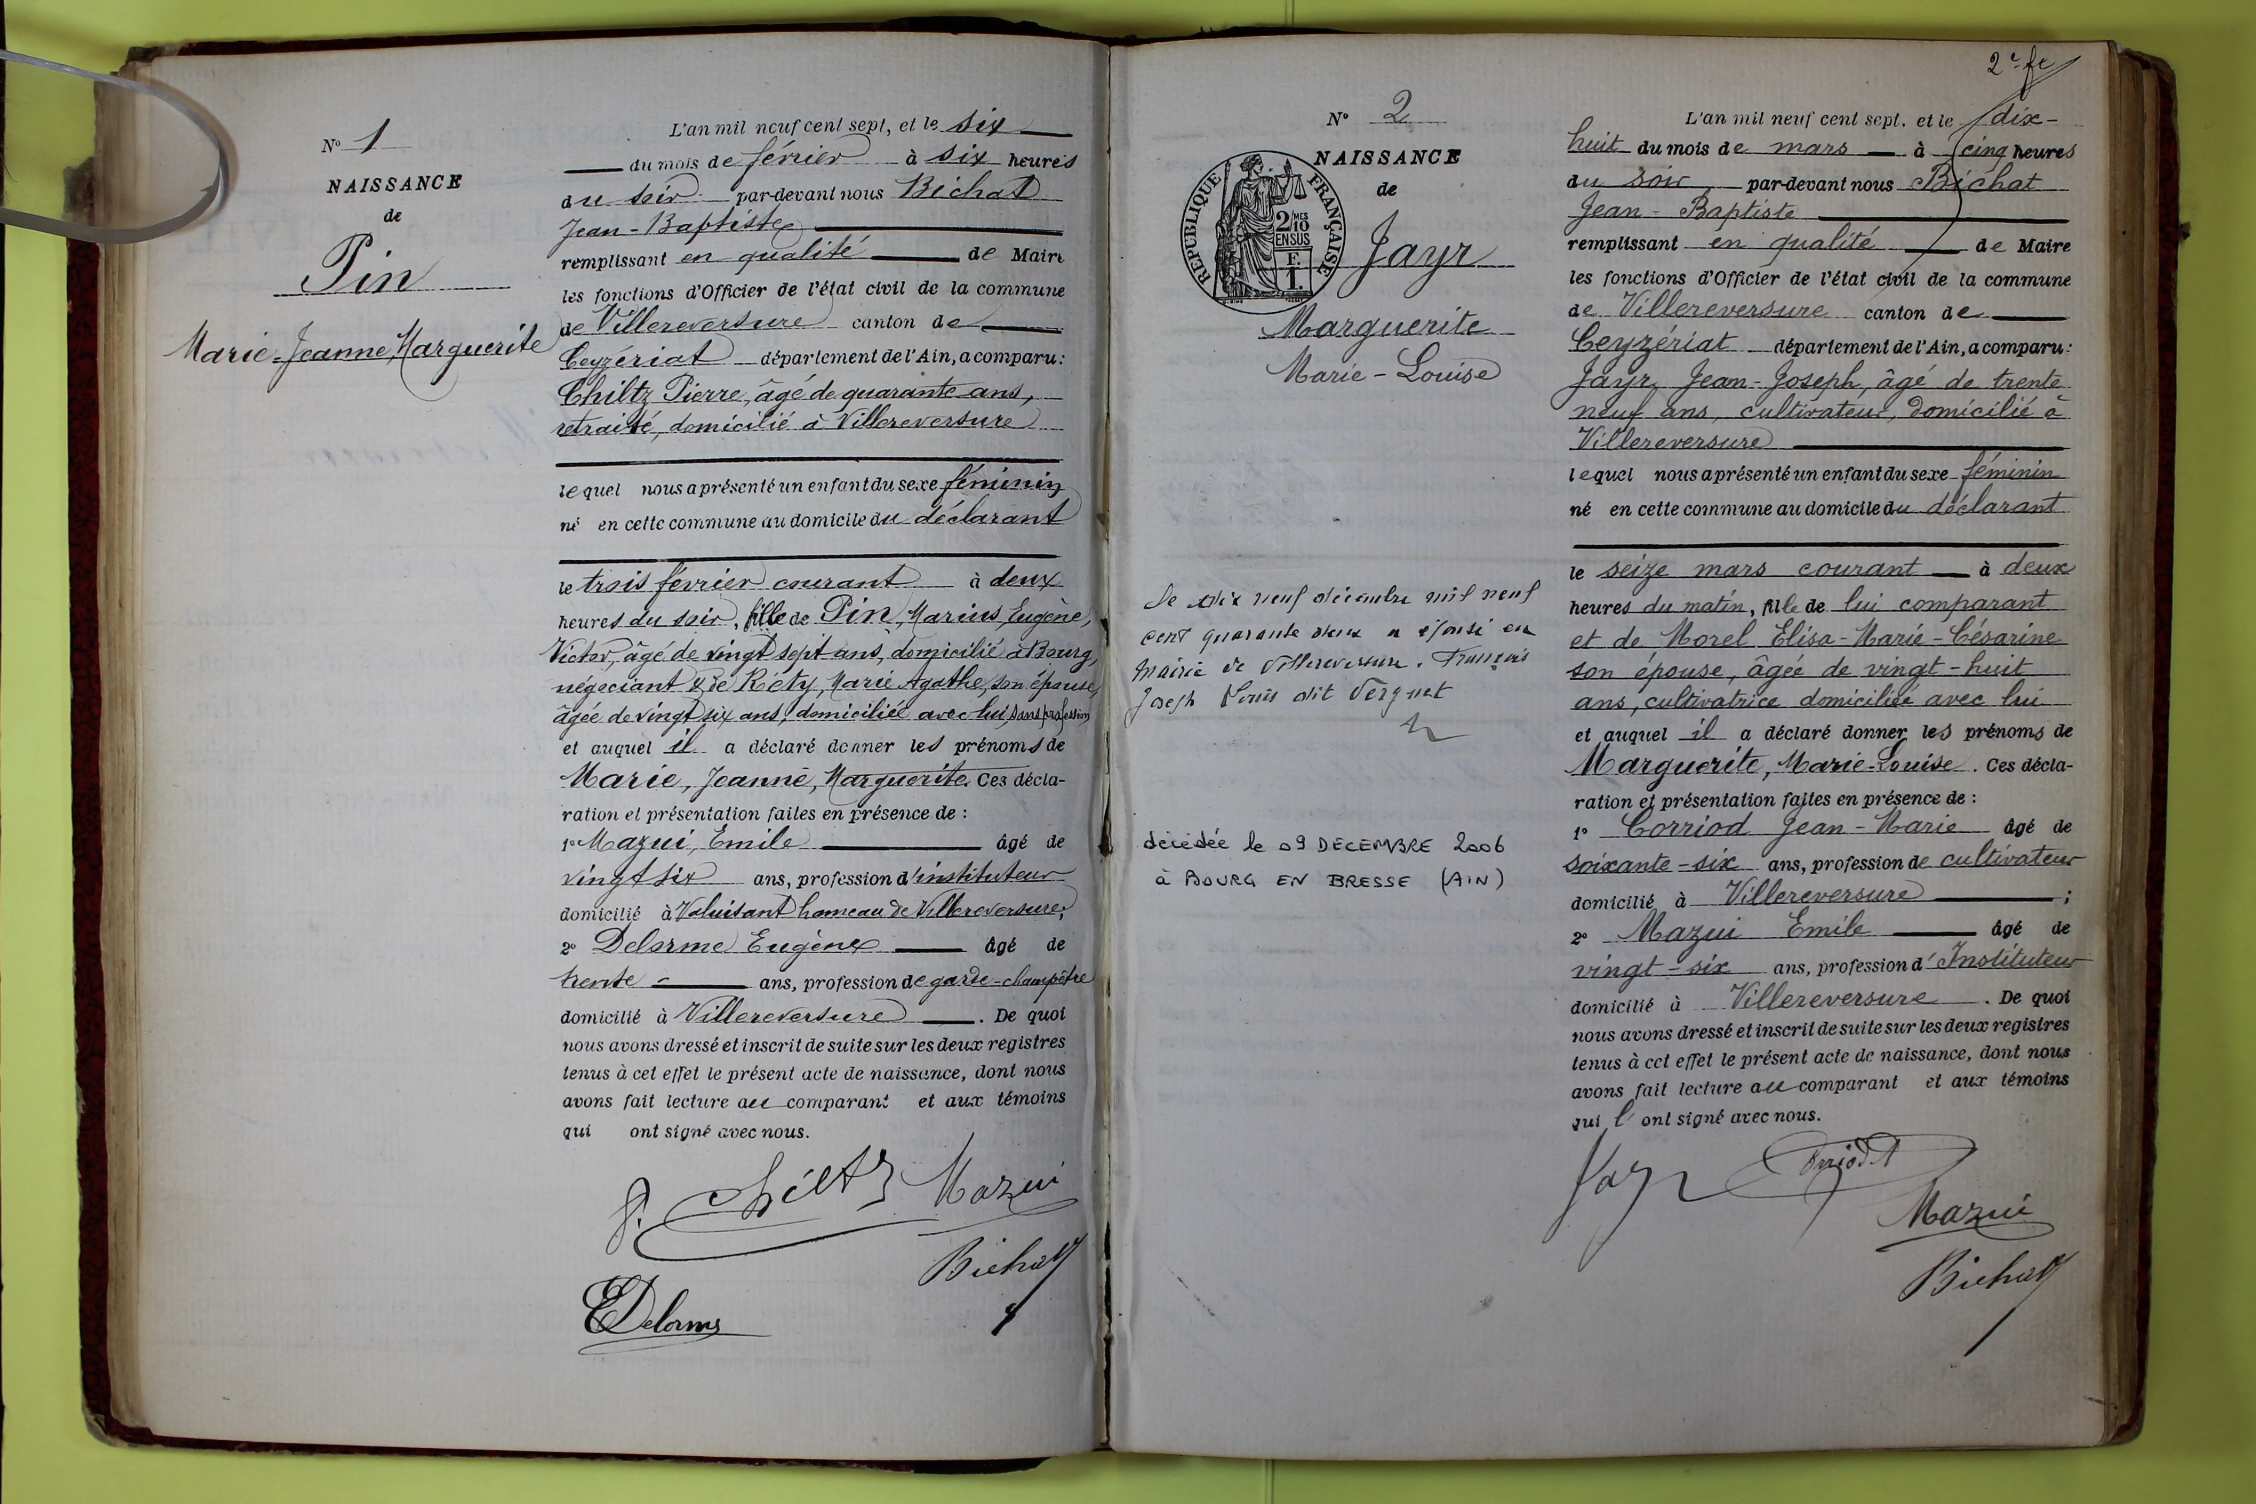 N° 1
NAISSANCE
de
Pin
Marie-Jeanne, Marguerite
L'an mil neuf cent sept, et le six
du mois de février à six heures
du soir par-devant nous Bichat
Jean-Baptiste
remplissant en qualité de Maire
les fonctions d'Officier de l'état civil de la commune
de Villereversure canton de
Ceyzériat département de l'Ain, a comparu:
Chiltz Pierre, âgé de quarante ans,
retraité, domicilié à Villereversure
lequel nous a présenté un enfant du sexe féminin
né en cette commune au domicile du déclarant
le trois février courant à deux
heures du soir, fille de Pin, Marius, Eugène,
Victor, âgé de vingt sept ans, domicilié à Bourg,
négociant & de Réty, Marie Agathe, son épouse,
âgée de vingt six ans, domiciliée avec lui, sans profession
et auquel il a déclaré donner les prénoms de
Marie, Jeanne, Marguerite. Ces décla-
ration et présentation faites en présence de :
1° Mazui, Emile âgé de
vingt six ans, profession d'instituteur
domicilié à Valuisant hameau de Villereversure;
2° Delorme Eugène âgé de
trente ans, profession de garde-champêtre
domicilié à Villereversure. De quoi
nous avons dressé et inscrit de suite sur les deux registres
tenus à cet effet le présent acte de naissance, dont nous
avons fait lecture au comparant et aux témoins
qui ont signé avec nous.
P. Chiltz Mazui
Bichat
E Delorme
2e fe
N° 2
NAISSANCE
de
RÉPUBLIQUE FRANÇAISE
2 MES
10
EN SUS
F.
1.
Jayr
Marguerite
Marie-Louise
Le dix neuf décembre mil neuf
cent quarante deux a épousé en
mairie de Villereversure. François
Joseph Louis dit Verguet
décédée le 09 DECEMBRE 2006
à BOURG EN BRESSE (AIN)
L'an mil neuf cent sept, et le dix-
huit du mois de mars à cinq heures
du soir par-devant nous Bichat
Jean-Baptiste
remplissant en qualité de Maire
les fonctions d'Officier de l'état civil de la commune
de Villereversure canton de
Ceyzériat département de l'Ain, a comparu:
Jayr, Jean-Joseph, âgé de trente
neuf ans, cultivateur, domicilié à
Villereversure
lequel nous a présenté un enfant du sexe féminin
né en cette commune au domicile du déclarant
le seize mars courant à deux
heures du matin, fille de lui comparant
et de Morel Elisa-Marie-Césarine
son épouse, âgée de vingt-huit
ans, cultivatrice domiciliée avec lui
et auquel il a déclaré donner les prénoms de
Marguerite, Marie-Louise. Ces décla-
ration et présentation faites en présence de :
1° Corriod Jean-Marie âgé de
soixante-six ans, profession de cultivateur
domicilié à Villereversure ;
2° Mazui Emile âgé de
vingt-six ans, profession d'Instituteur
domicilié à Villereversure. De quoi
nous avons dressé et inscrit de suite sur les deux registres
tenus à cet effet le présent acte de naissance, dont nous
avons fait lecture au comparant et aux témoins
qui l'ont signé avec nous.
Jayr Corriod
Mazui
Bichat